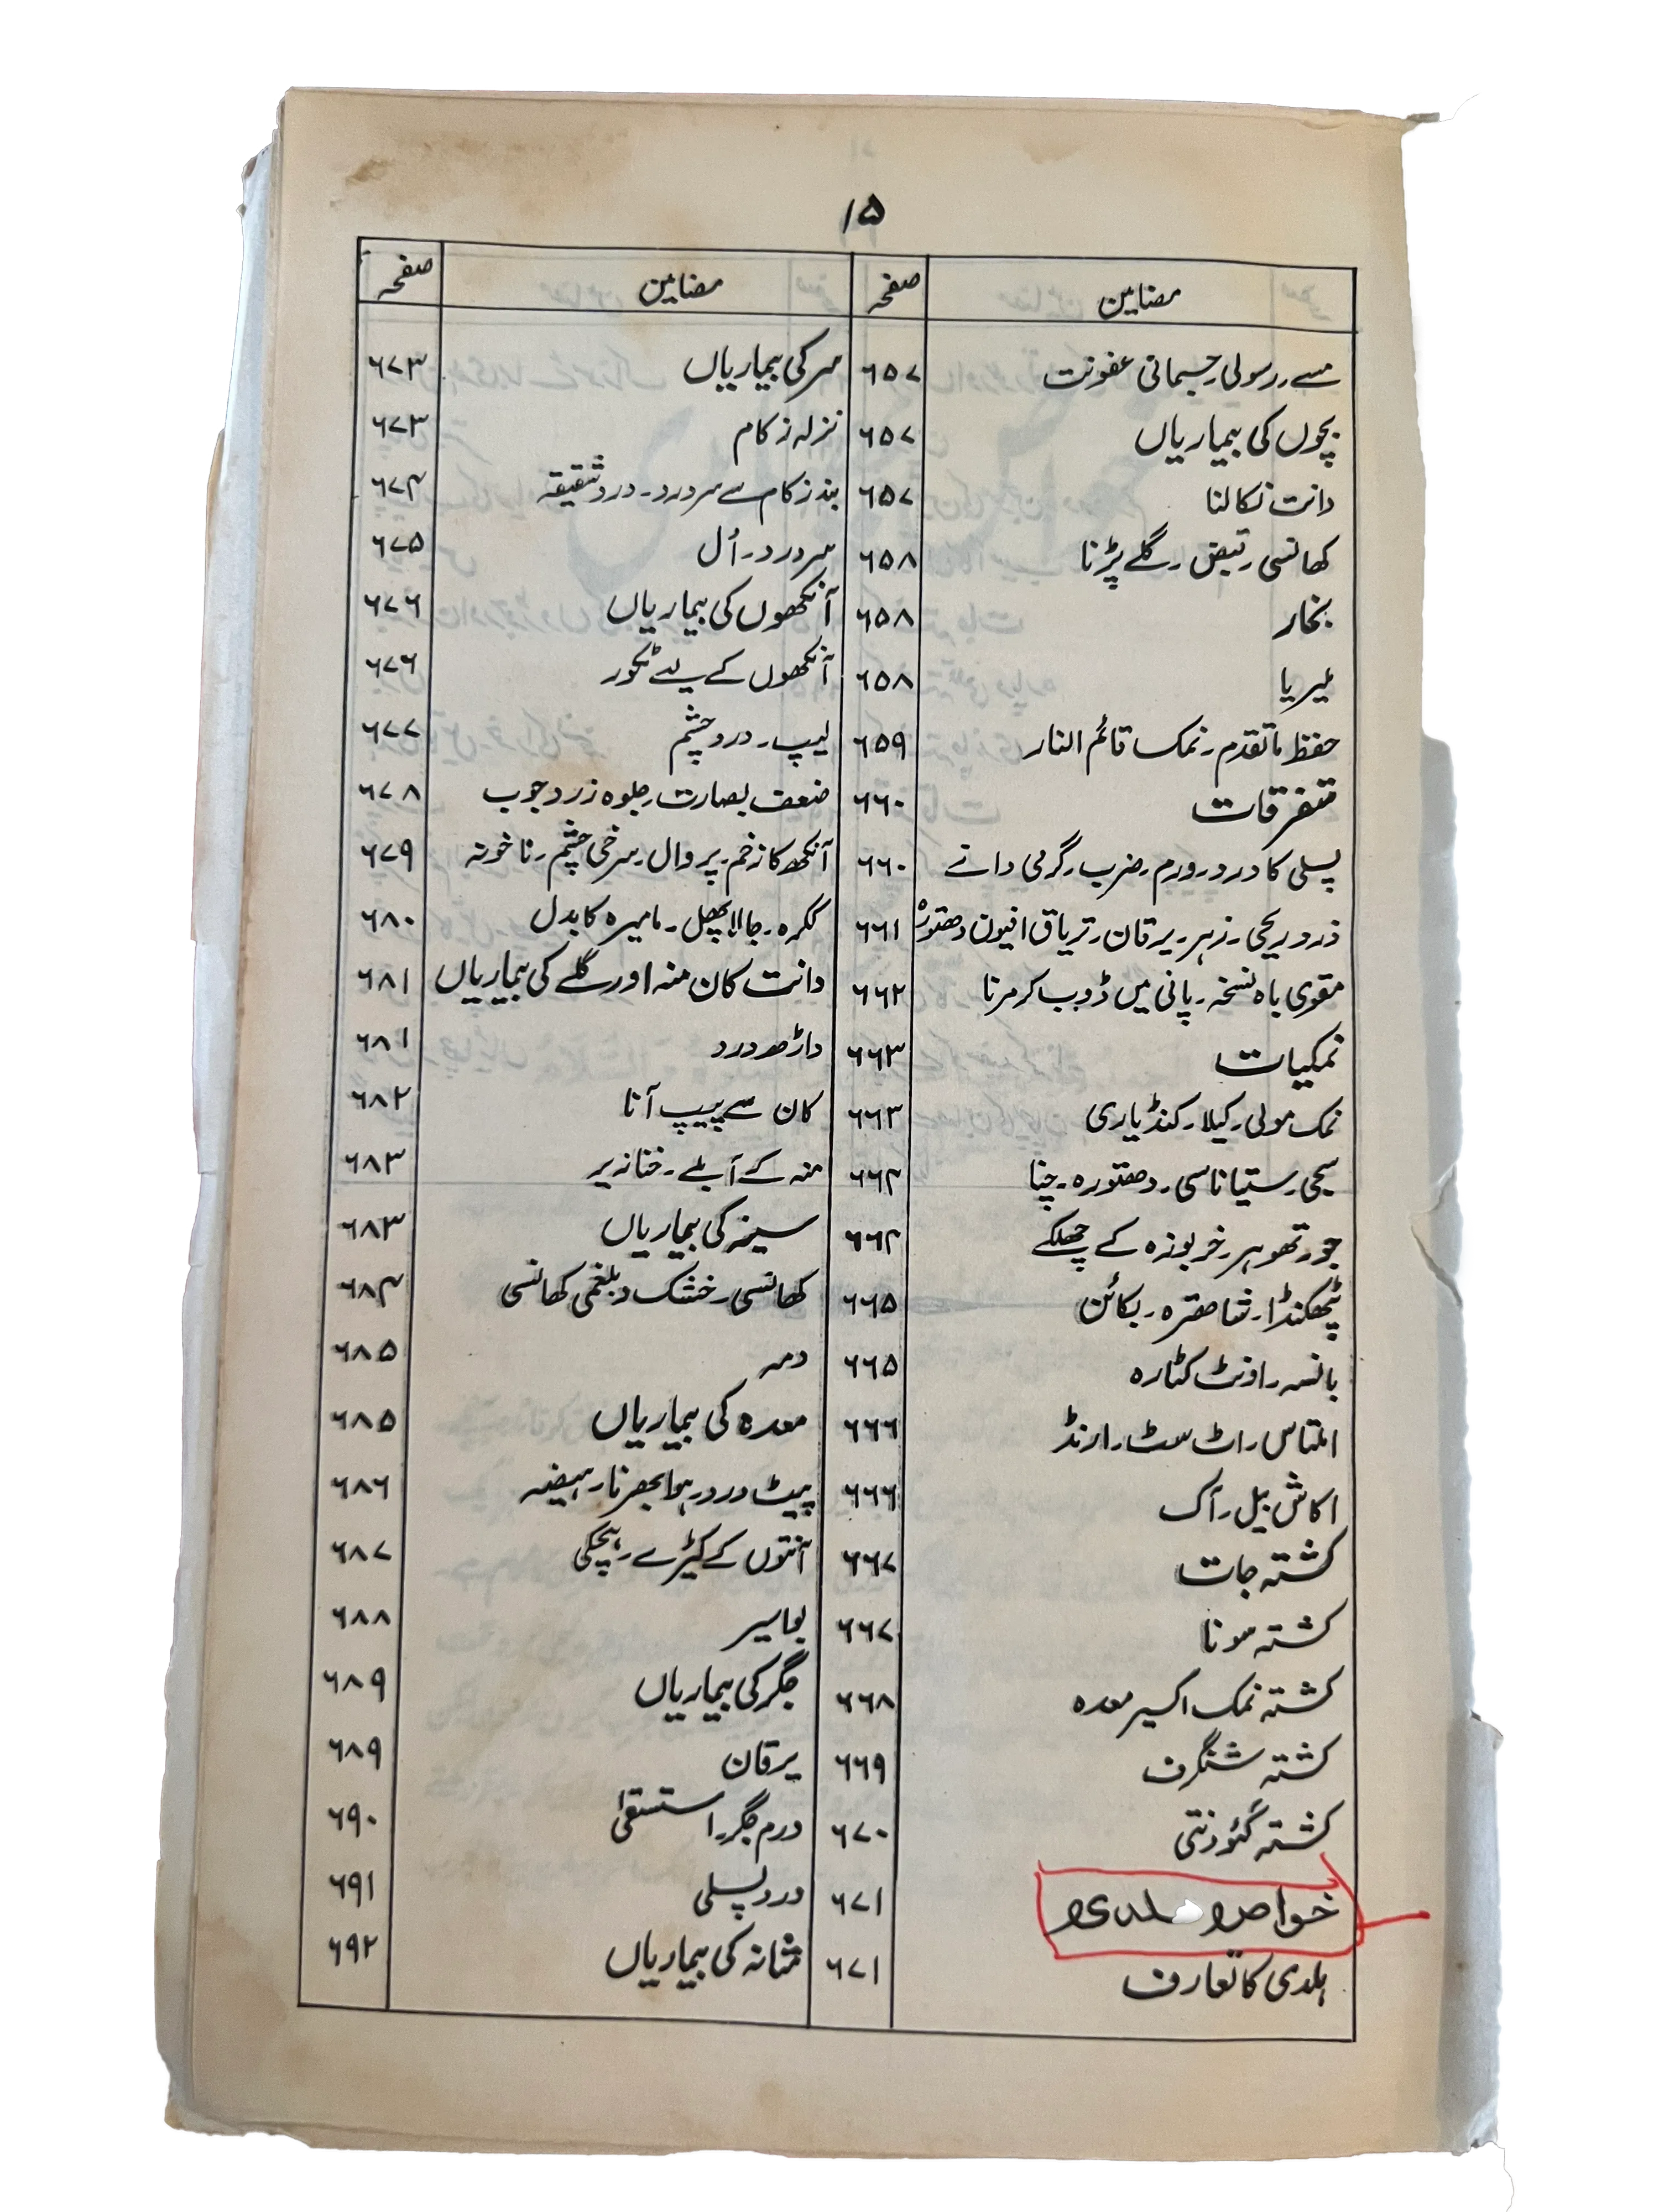 ۱۵
مضامین صفحہ
مسے۔ رسولی۔ جسمانی عفونت ۶۵۷
بچوں کی بیماریاں ۶۵۷
دانت نکالنا ۶۵۷
کھانسی۔ قبض۔ گلے پڑنا ۶۵۸
بخار ۶۵۸
ملیریا ۶۵۸
حفظ ماتقدم۔ نمک قائم النار ۶۵۹
متفرقات ۶۶۰
پسلی کا درد۔ ورم۔ ضرب۔ گرمی دانے ۶۶۰
درد ریحی۔ زہر۔ یرقان۔ تریاق افیون دھتورہ ۶۶۱
مقوی باہ نسخہ۔ پانی میں ڈوب کر مرنا ۶۶۲
نمکیات ۶۶۳
نمک مولی۔ کیلا۔ کنڈیاری ۶۶۳
سجی۔ ستیاناسی۔ دھتورہ۔ چنا ۶۶۴
جو۔ تھوہر۔ خربوزہ کے چھلکے ۶۶۴
پٹھکنڈا۔ بکائن ۶۶۵
بانسہ۔ اونٹ کٹارہ ۶۶۵
املتاس۔ اٹ سٹ۔ ارنڈ ۶۶۶
اکاش بیل۔ آک ۶۶۶
کشتہ جات ۶۶۷
کشتہ سونا ۶۶۷
کشتہ نمک اکسیر معدہ ۶۶۸
کشتہ شنگرف ۶۶۹
کشتہ گئودنتی ۶۷۰
خواص ہلدی ۶۷۱
ہلدی کا تعارف ۶۷۱
مضامین صفحہ
سر کی بیماریاں ۶۷۳
نزلہ زکام ۶۷۳
بند زکام سے سر درد۔ درد شقیقہ ۶۷۴
سر درد۔ اُل ۶۷۵
آنکھوں کی بیماریاں ۶۷۶
آنکھوں کے لیے ٹکور ۶۷۶
لیپ۔ درد چشم ۶۷۷
ضعف بصارت۔ جلوہ زرد چوب ۶۷۸
آنکھ کا زخم۔ پروال۔ سرخی چشم۔ ناخونہ ۶۷۹
ککرہ۔ جالا پھل۔ مامیرہ کا بدل ۶۸۰
دانت کان منہ اور گلے کی بیماریاں ۶۸۱
داڑھ درد ۶۸۱
کان سے پیپ آنا ۶۸۲
منہ کے آبلے۔ خنازیر ۶۸۳
سینہ کی بیماریاں ۶۸۳
کھانسی۔ خشک و بلغمی کھانسی ۶۸۴
دمہ ۶۸۵
معدہ کی بیماریاں ۶۸۵
پیٹ درد۔ ہوا بھرنا۔ ہیضہ ۶۸۶
آنتوں کے کیڑے۔ ہچکی ۶۸۷
بواسیر ۶۸۸
جگر کی بیماریاں ۶۸۹
یرقان ۶۸۹
ورم جگر۔ استسقیٰ ۶۹۰
درد پسلی ۶۹۱
مثانہ کی بیماریاں ۶۹۲